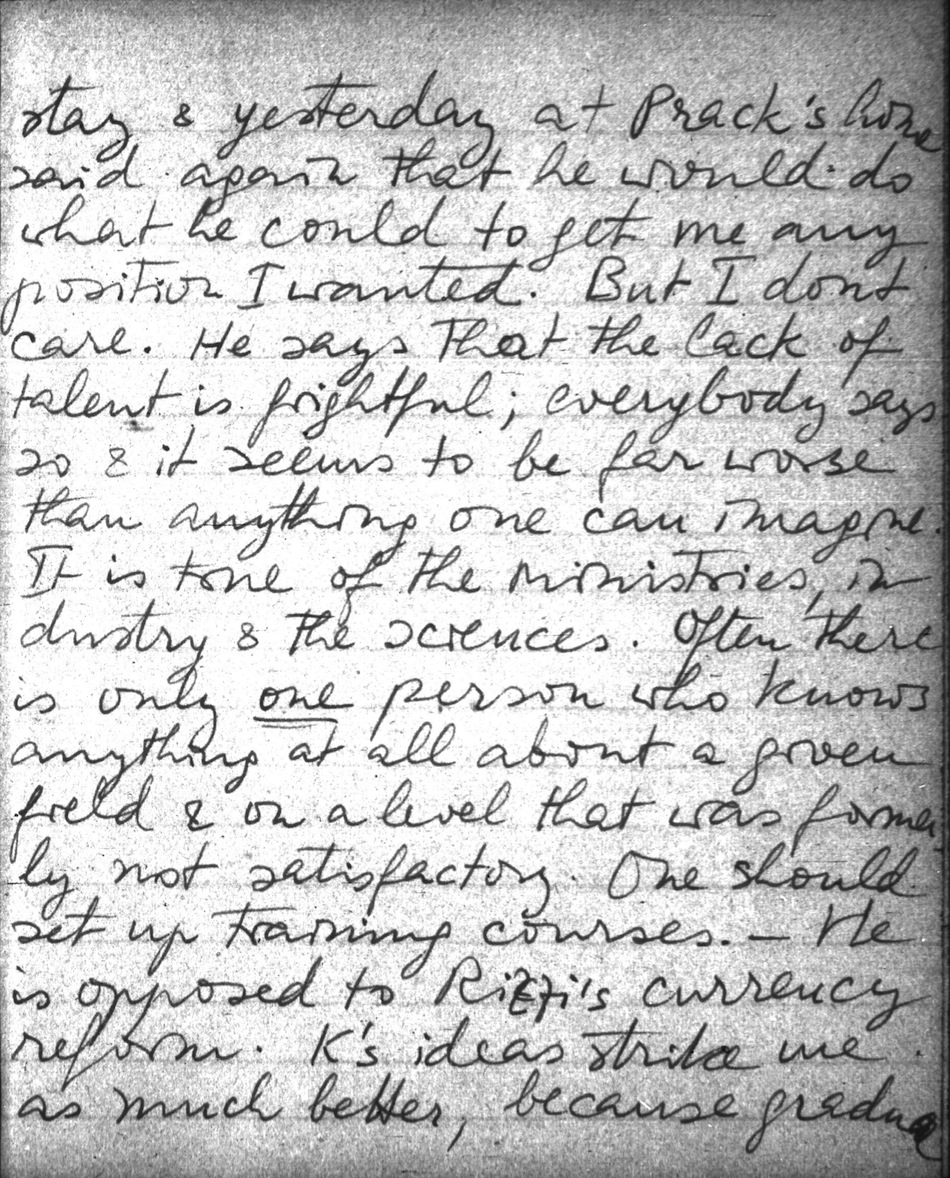 stay & yesterday at Prack's home
said again that he would do
what he could to get me any
position I wanted. But I dont
care. He says that the lack of
talent is frightful; everybody says
so & it seems to be far worse
than anything one can imagine.
It is true of the ministries, in
dustry & the sciences. Often there
is only one person who knows
anything at all about a given
field & on a level that was former
ly not satisfactory. One should
set up training courses. — He
is opposed to Rizzi's currency
reform. K's ideas strike me
as much better, because gradual